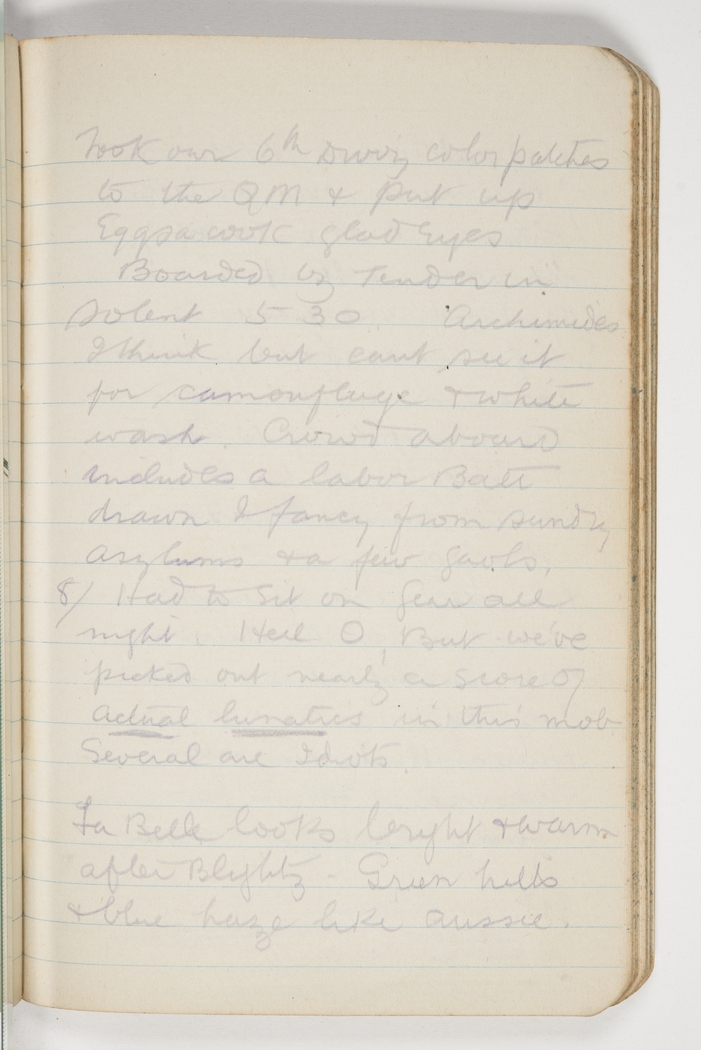 Took our 6th Divvy color patches
to the QM & put up
Eggsacook glad Eyes
Boarded by Tender in
Solent 5 30. Archimedes
I think but cant see it
for camouflage & white
wash. Crowd aboard
includes a labor Batt
drawn I fancy from sundry
asylums & a few gaols.
8/ Had to sit on gear all
night. Hell O, But we've
picked out nearly a score of
actual lunatics in this mob
Several are Idiots.
La Belle looks bright & warm
after Blighty - Green hills
& blue haze like Aussie.